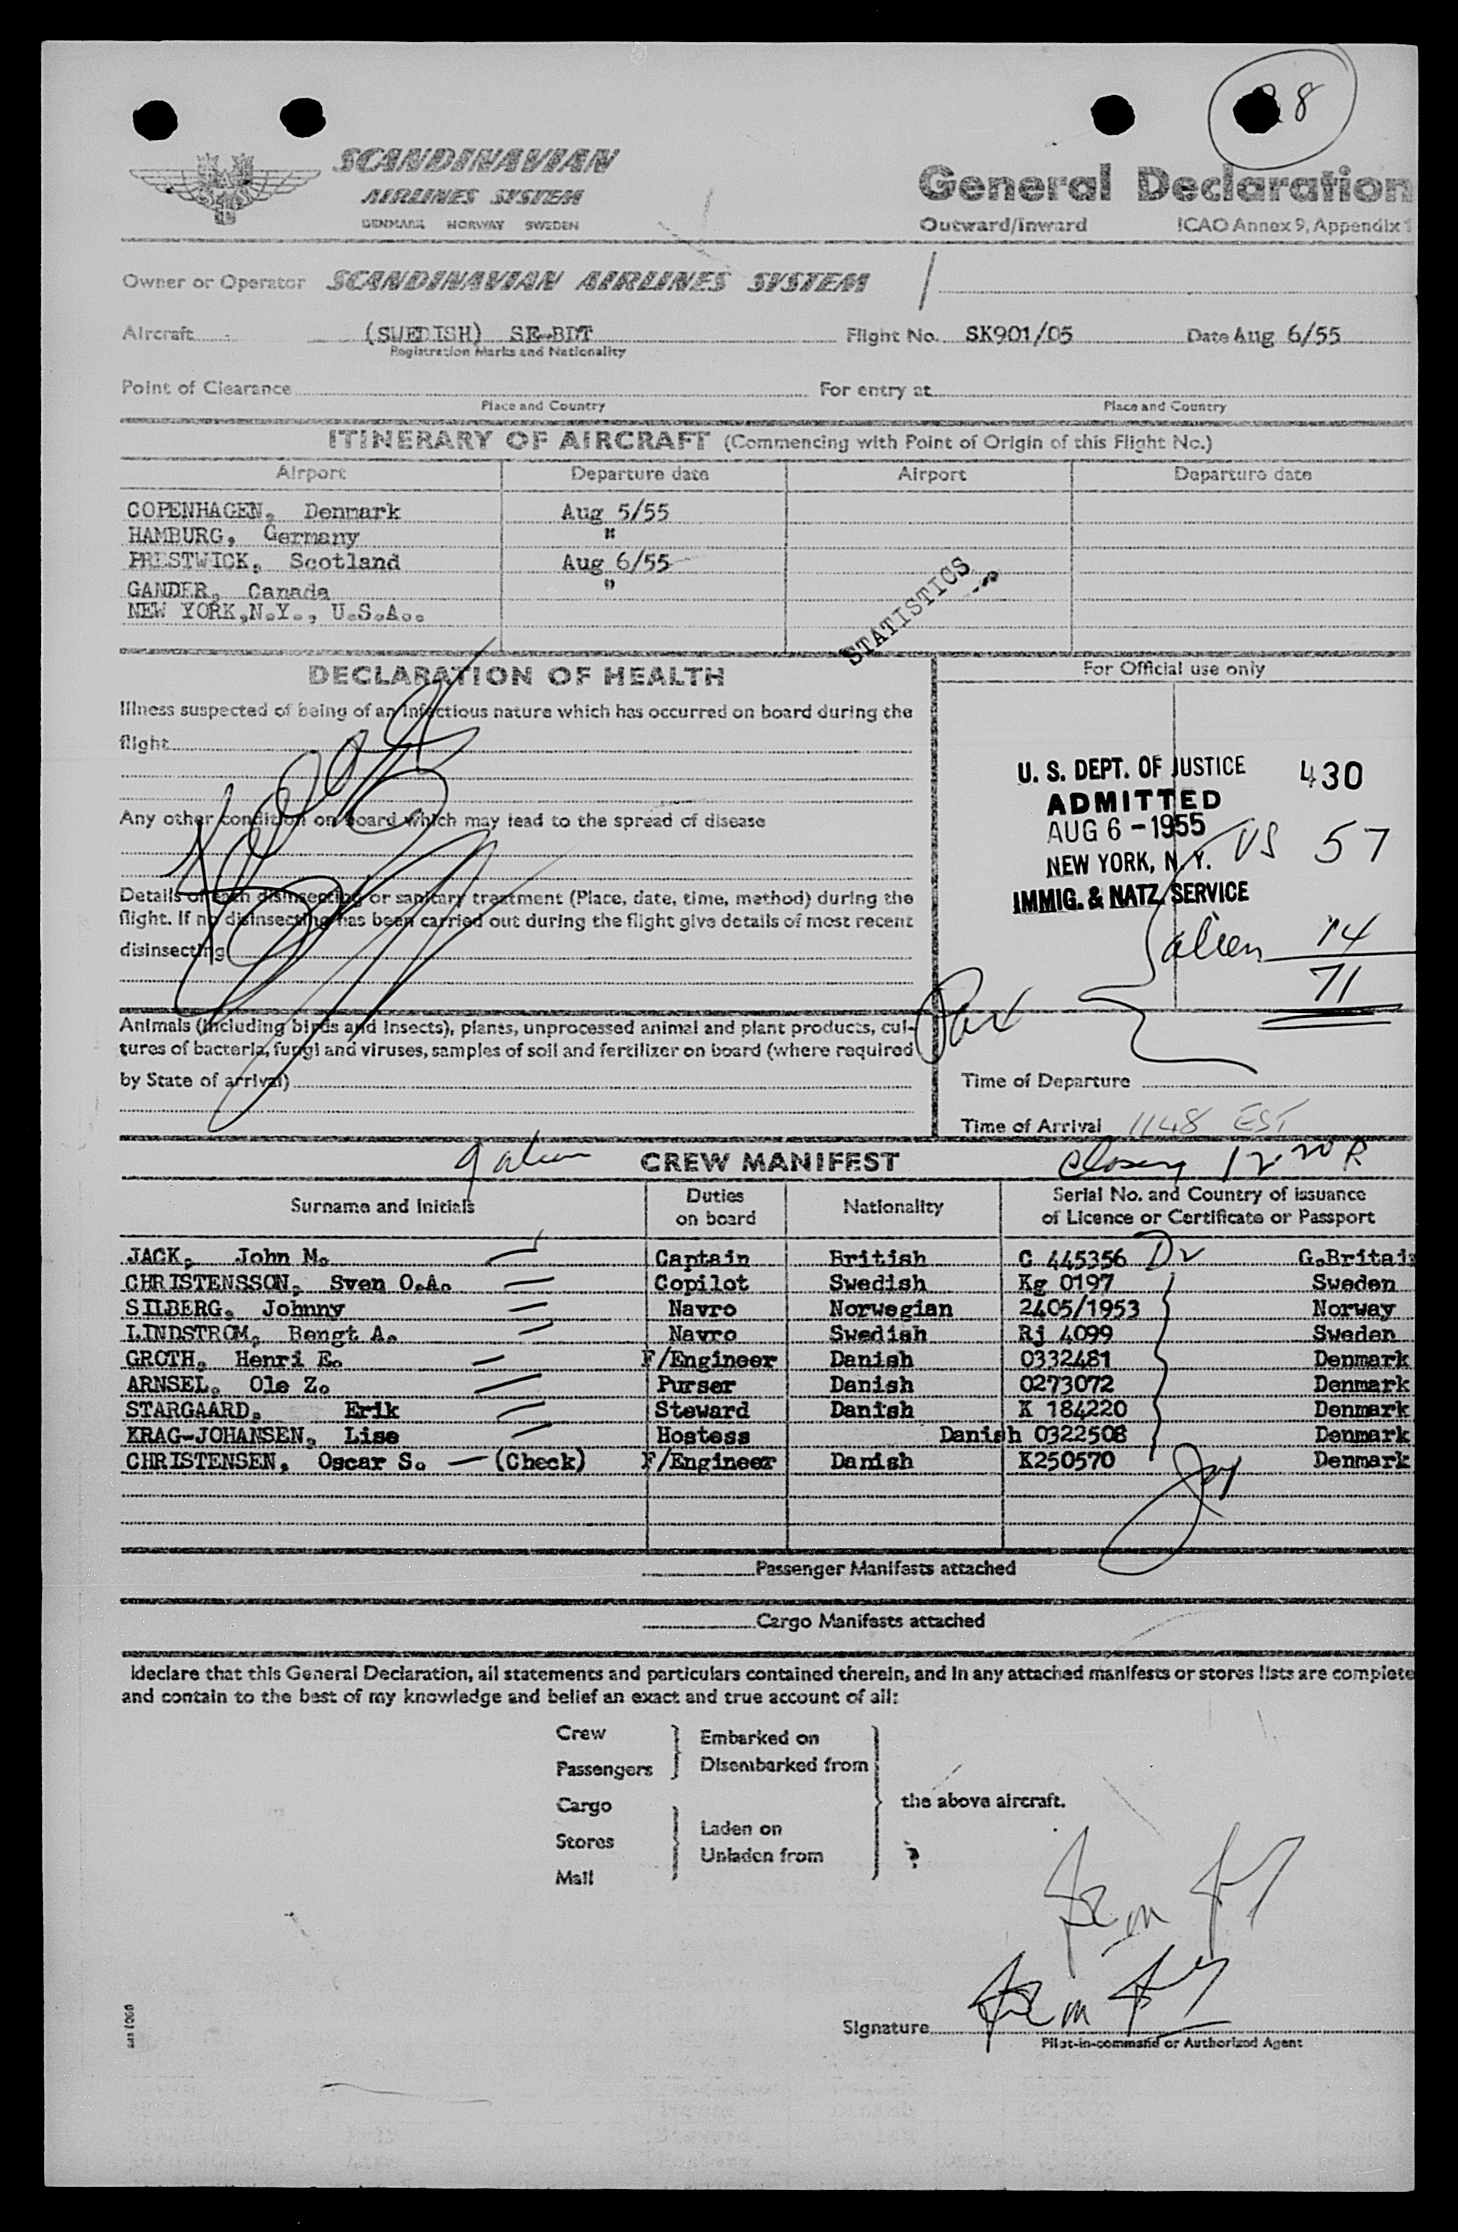 28
SCANDINAVIAN
AIRLINES SYSTEM
DENMARK NORWAY SWEDEN
General Declaration
Outward/Inward ICAO Annex 9, Appendix 1
Owner or Operator SCANDINAVIAN AIRLINES SYSTEM
Aircraft (SWEDISH) SE-BDT Flight No. SK901/05 Date Aug 6/55
Registration Marks and Nationality
Point of Clearance For entry at
Place and Country Place and Country
ITINERARY OF AIRCRAFT (Commencing with Point of Origin of this Flight No.)
Airport Departure date Airport Departure date
COPENHAGEN, Denmark Aug 5/55
HAMBURG, Germany "
PRESTWICK, Scotland Aug 6/55
GANDER, Canada "
NEW YORK,N.Y., U.S.A..
STATISTICS
DECLARATION OF HEALTH
For Official use only
Illness suspected of being of an infectious nature which has occurred on board during the
flight
Any other condition on board which may lead to the spread of disease
Details of each disinsecting or sanitary treatment (Place, date, time, method) during the
flight. If no disinsecting has been carried out during the flight give details of most recent
disinsecting
U. S. DEPT. OF JUSTICE 430
ADMITTED
AUG 6 - 1955 US 57
NEW YORK, N. Y.
IMMIG. & NATZ. SERVICE
alien 14
71
Pax
Animals (including birds and insects), plants, unprocessed animal and plant products, cul-
tures of bacteria, fungi and viruses, samples of soil and fertilizer on board (where required
by State of arrival)
Time of Departure
Time of Arrival 1148 EST
9 alien CREW MANIFEST closing 12 20 P
Surname and Initials Duties on board Nationality Serial No. and Country of issuance
of Licence or Certificate or Passport
JACK, John M. Captain British C 445356 G.Britain
CHRISTENSSON, Sven O.A. Copilot Swedish Kg 0197 Sweden
SILBERG, Johnny Navro Norwegian 2405/1953 Norway
LINDSTROM, Bengt A. Navro Swedish Rj 4099 Sweden
GROTH, Henri E. F/Engineer Danish 0332481 Denmark
ARNSEL, Ole Z. Purser Danish 0273072 Denmark
STARGAARD, Erik Steward Danish K 184220 Denmark
KRAG-JOHANSEN, Lise Hostess Danish 0322508 Denmark
CHRISTENSEN, Oscar S. — (Check) F/Engineer Danish K250570 Denmark
Passenger Manifests attached
Cargo Manifests attached
I declare that this General Declaration, all statements and particulars contained therein, and in any attached manifests or stores lists are complete
and contain to the best of my knowledge and belief an exact and true account of all:
Crew Embarked on
Passengers Disembarked from
Cargo the above aircraft.
Stores Laden on
Mail Unladen from
Signature
Pilot-in-command or Authorized Agent